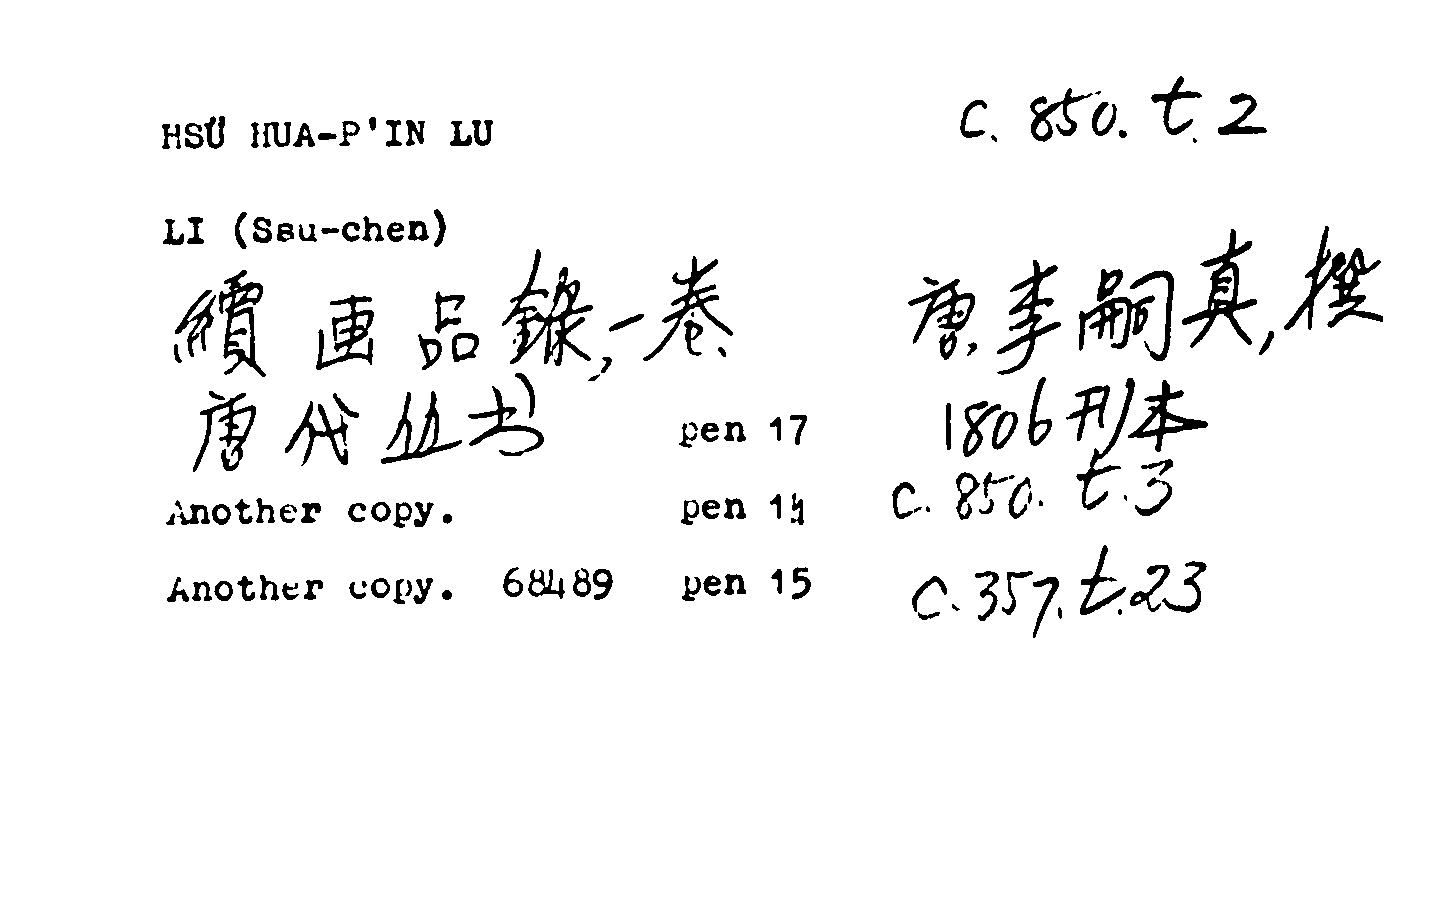 HSÜ HUA-P'IN LU C. 850. t. 2
LI (Ssu-chen)
續画品錄,一卷 唐李嗣真,撰
唐代丛书 pen 17 1806刊本
Another copy. pen 14 C. 850. t.3
Another copy. 68489 pen 15 C.357.t.23